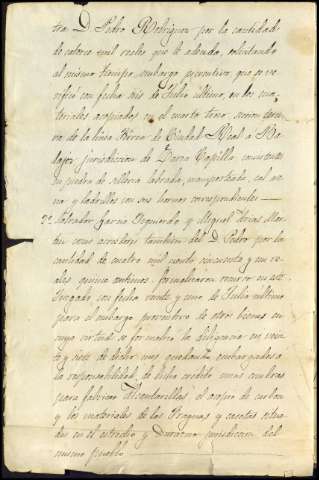 tra D. Pedro Rodriguez por la cantidad
de catorce mil reales que le adeuda, solicitando
al mismo tiempo, embargo preventivo que se ve-
rificó con fecha seis de Julio último, en los ma-
teriales acopiados en el cuarto trozo, seccion
de la linea férrea de Ciudad Real a Ba-
dajoz jurisdiccion de Zarza Capilla, consistente
en piedra de silleria labrada, mamposteada, cal are-
na y ladrillos con sus hornos correspondientes
Salvador Garcia Izquierdo y Miguel Arias Mar-
tin como acreedores tambien del D. Pedro por la
cantidad de cuatro mil ciento cincuenta y un re-
ales quince centimos, formalizaron recurso en este
Juzgado con fecha veinte y uno de Julio último
para el embargo preventivo de otros bienes en
cuya virtud se formalizó la diligencia en vein-
te y siete de haber sus quedando embargados a
la responsabilidad de dicho credito unas
para fabricar Alcantarillas, el acopio de carbon
y los materiales de las Fraguas y casetas situa-
das en el estrecho y jurisdiccion del
mismo pueblo